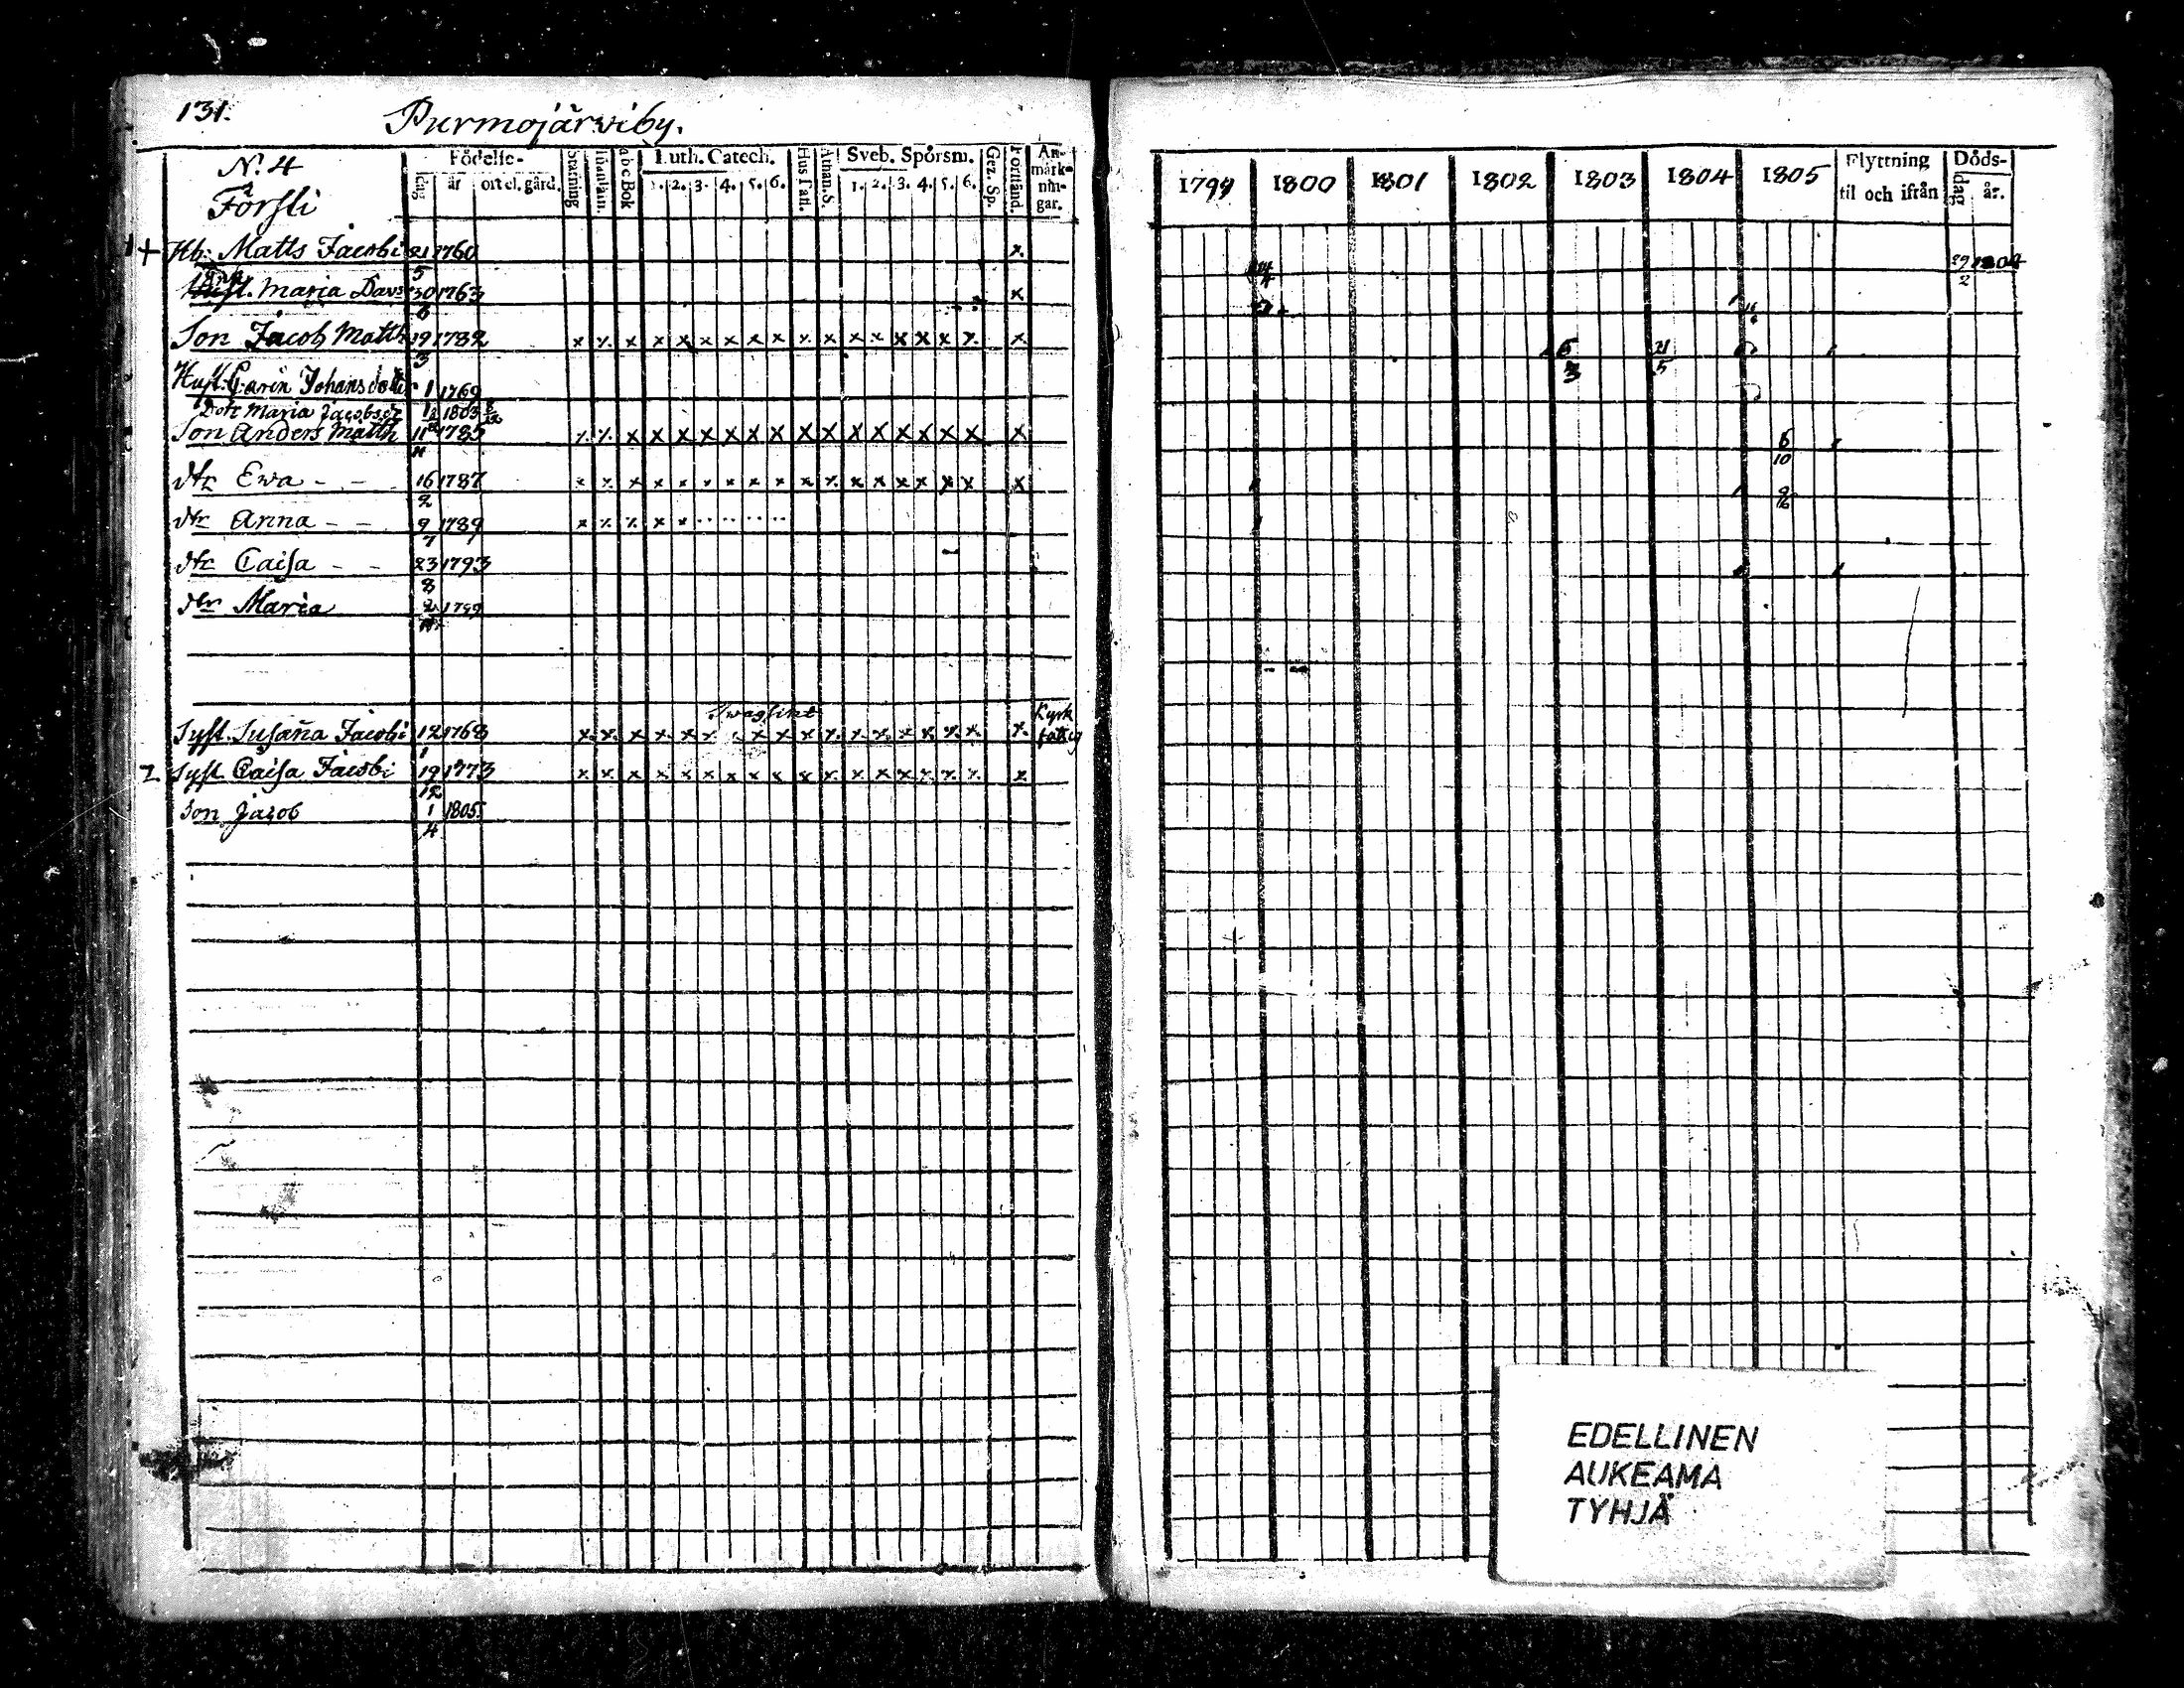 131. Purmojärviby.
N:o 4
Försti
Födelse-
dag år ort el. gård.
Stafning
Innanläsn.
abcBok
Luth. Catech.
1. 2. 3. 4. 5. 6.
Hus Tafl.
Athan. S.
Sveb. Spörsm.
1. 2. 3. 4. 5. 6.
Gez. Sp.
Förstånd.
An-
märk-
nin-
gar.
1799 1800 1801 1802 1803 1804 1805
Flyttning
til och ifrån
Döds-
dag år.
+ Hb. Matts Jacobi 21/5 1760 x 29/2 1804
Maria Davs 30/6 1763 x
Son Jacob Matth 19/3 1782 x x x x x x x x x x x x x x x x x x
Hust. Carin Johansdotter 1 1769
Dotr Maria Jacobsdr 1803
Son Anders Matth 11/11 1785 x x x x x x x x x x x x x x x x x x 6/10
dtr Ewa - - 16/2 1787 x x x x x x x x x x x x x x x x x x
dtr Anna - - 9/7 1789 x x x x x
dtr Caisa - - 23/8 1793
dtr Maria 1799
Syst. Susaña Jacobi 12/1 1768 Kyrk
Syst. Caisa Jacobi 19/12 1773 x x x x x x x x x x x x x x x x x x
Son Jacob 1/4 1805
EDELLINEN
AUKEAMA
TYHJÄ